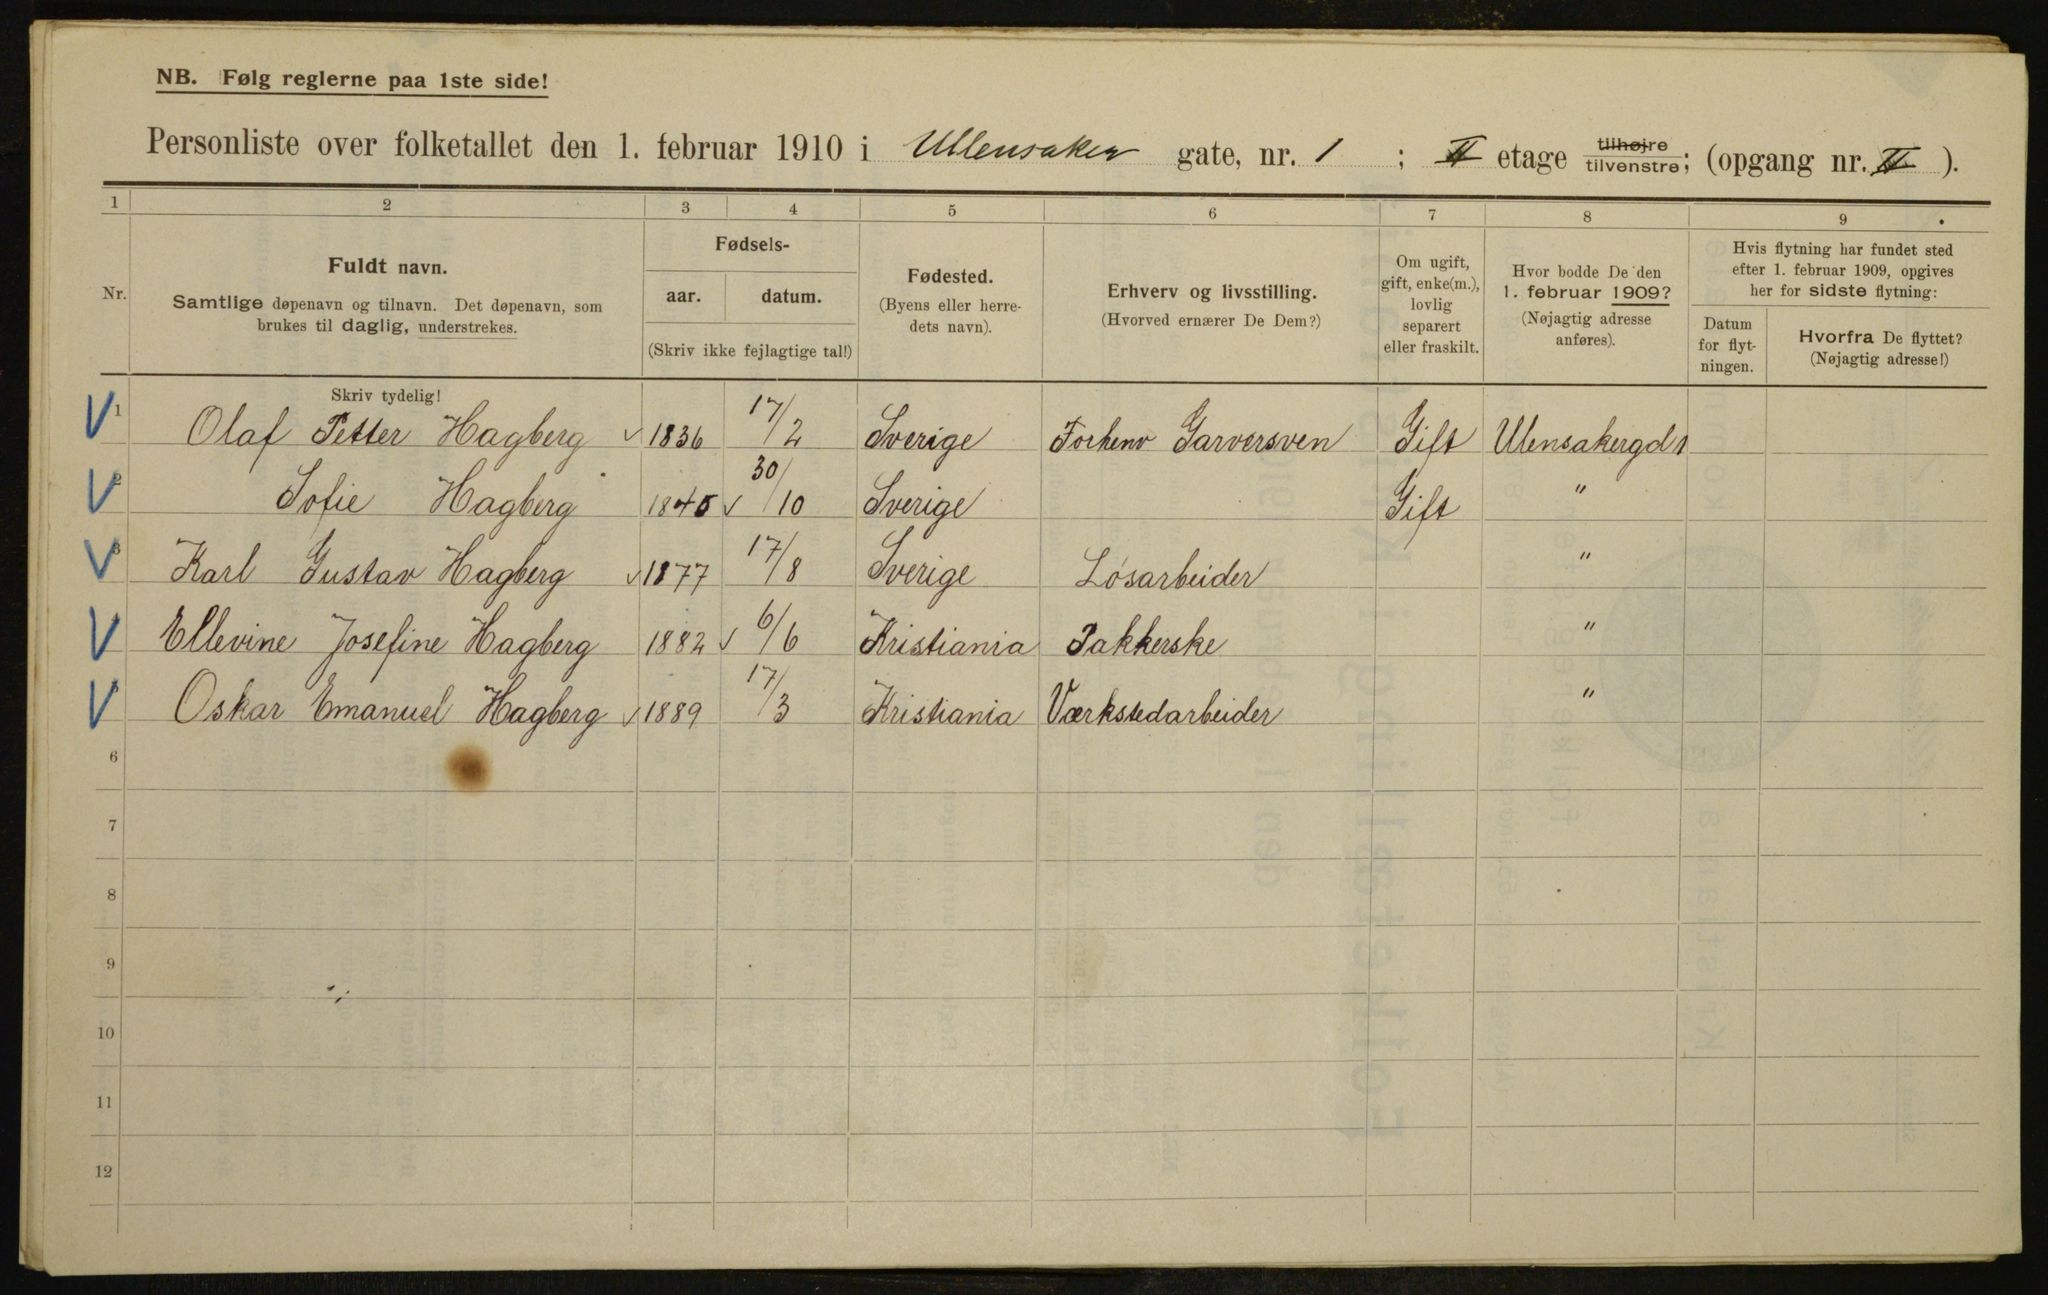 NB. Følg reglerne paa 1ste side!
Personliste over folketallet den 1. februar 1910 i Ullensaker gate, nr. 1 ; II etage tilhøjre tilvenstre; (opgang nr. II ).
1 2 3 4 5 6 7 8 9
Nr.
Fuldt navn.
Samtlige døpenavn og tilnavn. Det døpenavn, som
brukes til daglig, understrekes.
Fødsels-
aar. datum.
(Skriv ikke fejlagtige tal!)
Fødested.
(Byens eller herre-
dets navn).
Erhverv og livsstilling.
(Hvorved ernærer De Dem?)
Om ugift,
gift, enke(m.),
lovlig
separert
eller fraskilt.
Hvor bodde De den
1. februar 1909?
(Nøjagtig adresse
anføres).
Hvis flytning har fundet sted
efter 1. februar 1909, opgives
her for sidste flytning:
Datum
for flyt-
ningen.
Hvorfra De flyttet?
(Nøjagtig adresse!)
Skriv tydelig!
1 Olaf Petter Hagberg 1836 17/2 Sverige Forhenv Garversven Gift Ulensakergd 1
2 Sofie Hagberg 1840 30/10 Sverige Gift "
3 Karl Gustav Hagberg 1877 17/8 Sverige Løsarbeider "
Ellevine Josefine Hagberg 1882 6/6 Kristiania Pakkerske "
Oskar Emanuel Hagberg 1889 17/3 Kristiania Værkstedarbeider "
6
7
8
9
10
11
12